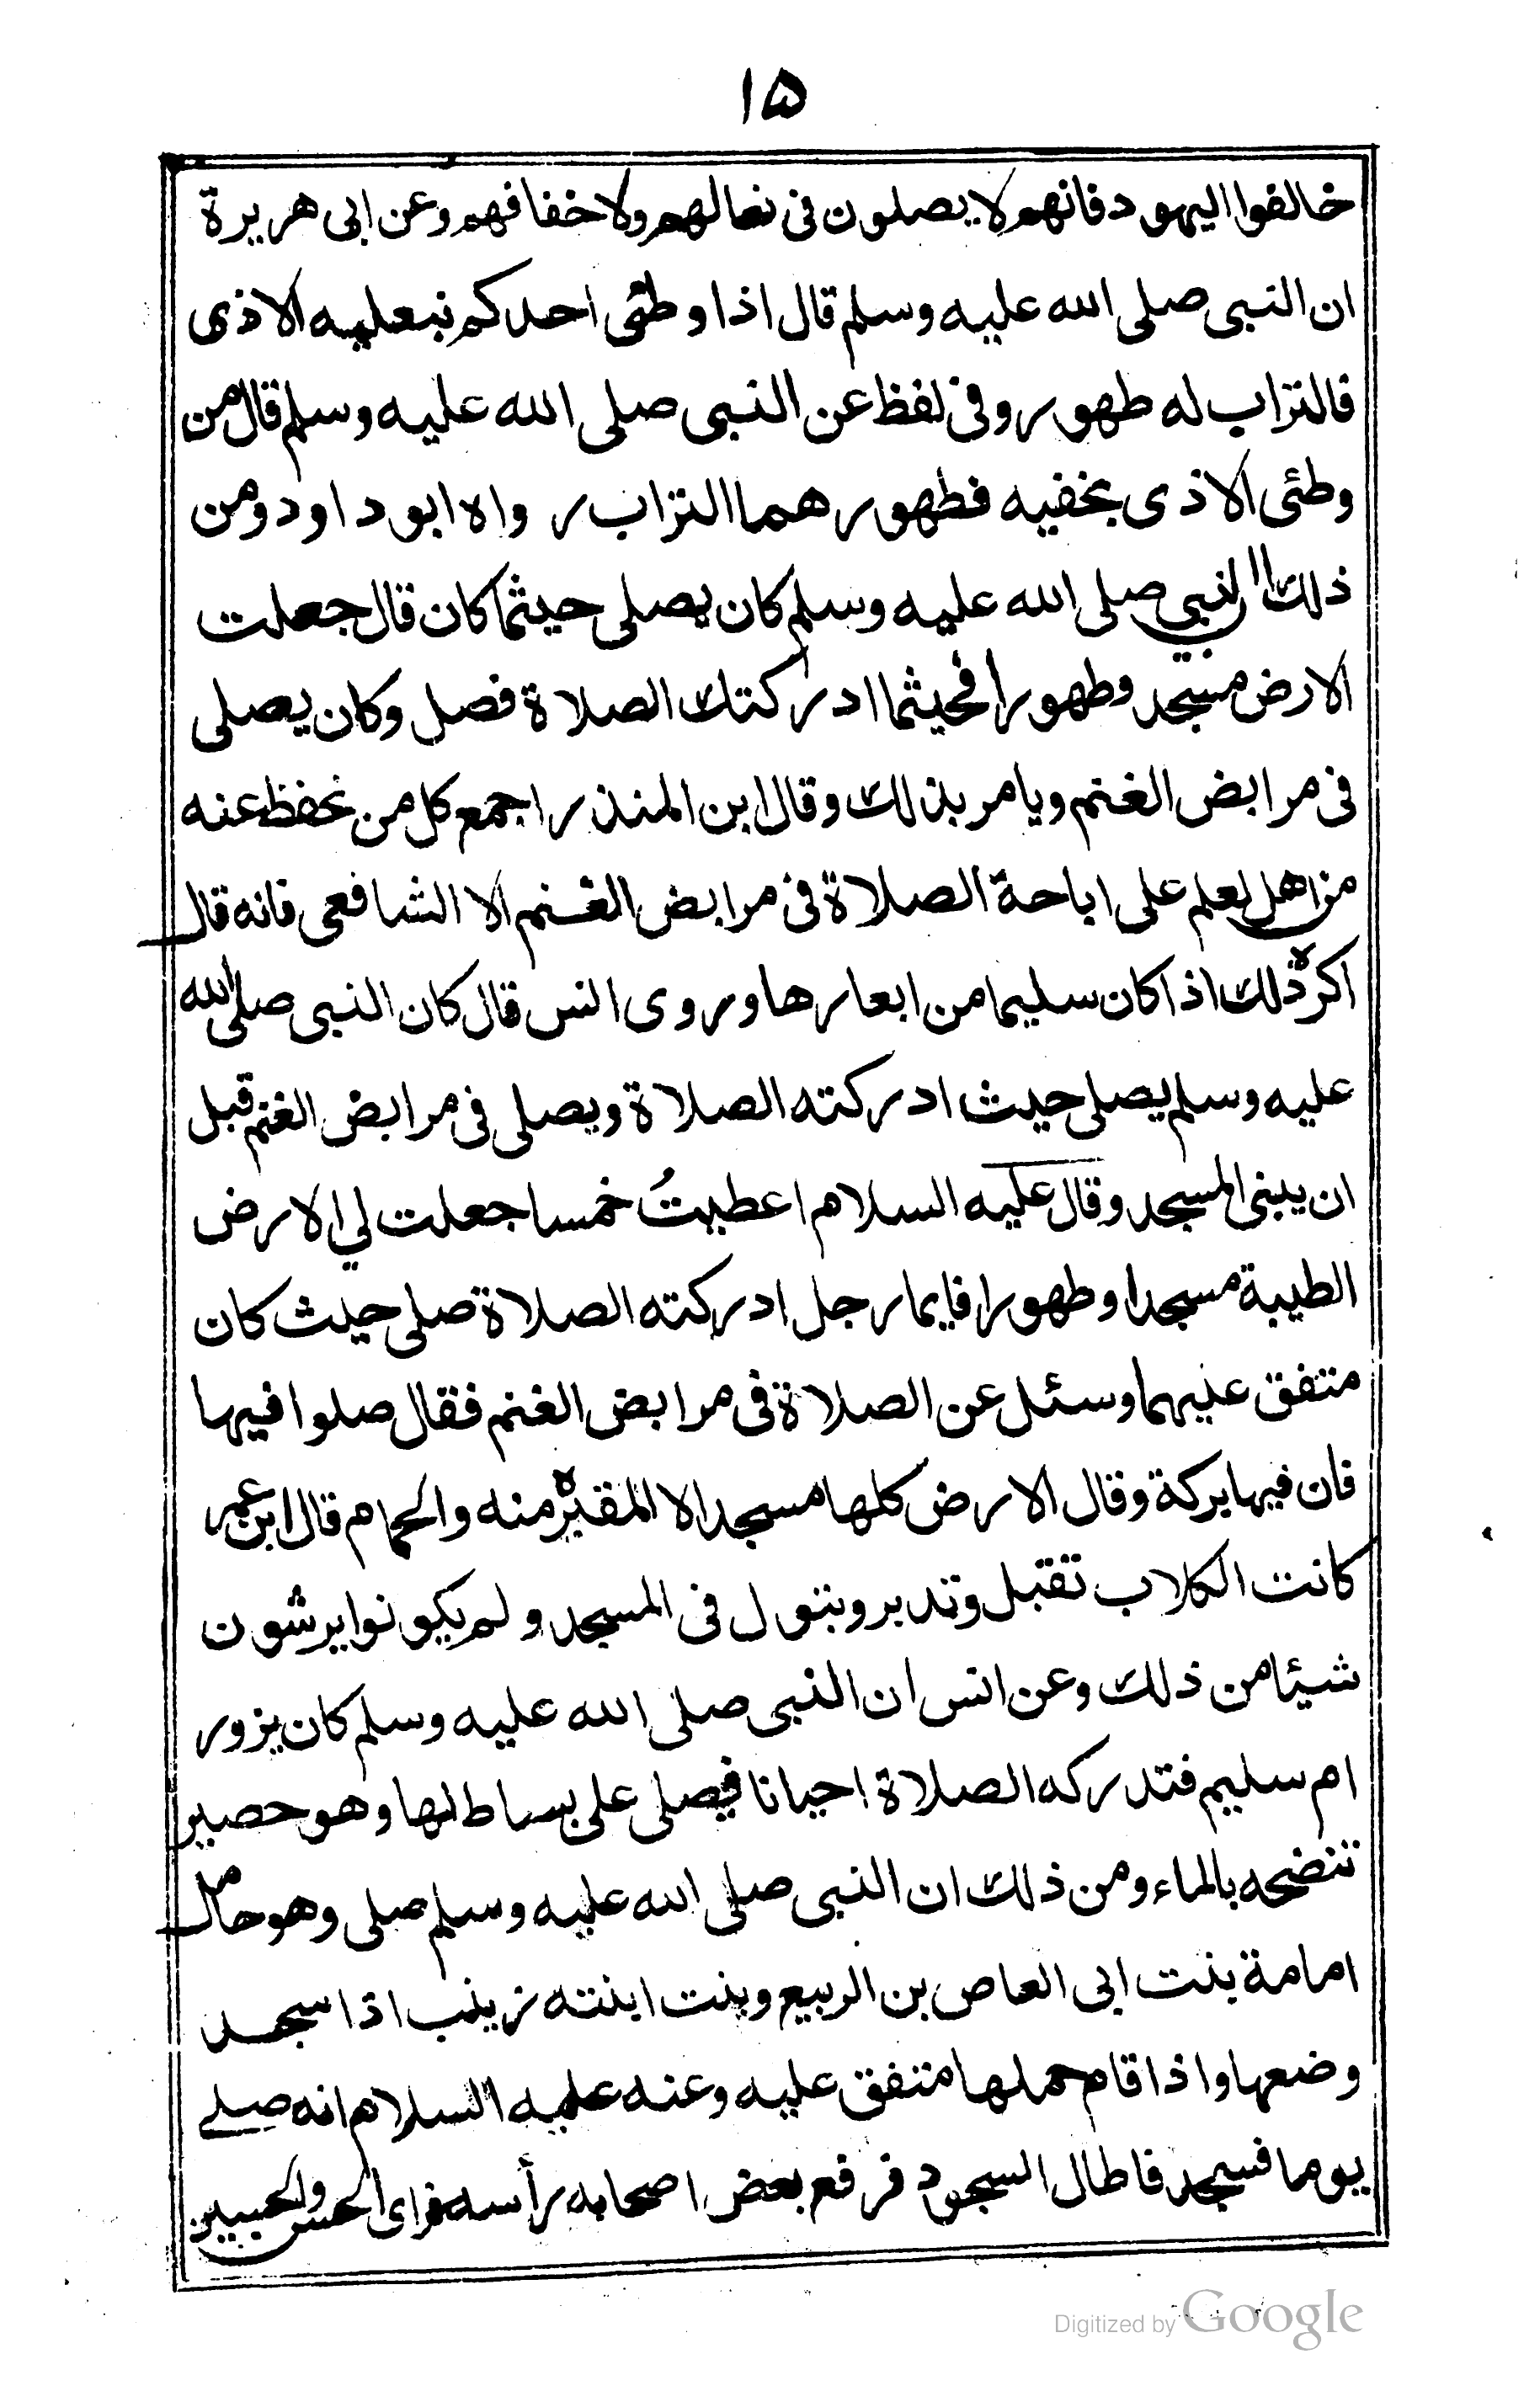 ١٥
خالفوا اليهود فانهم لا يصلون فى نعالهم ولا خفافهم وعن ابى هريرة
ان النبى صلى الله عليه وسلم قال اذا وطئى احدكم بنعليه الاذى
فالتراب له طهور وفى لفظ عن النبى صلى الله عليه وسلم قال من
وطئى الاذى بخفيه فطهورهما التراب رواه ابو داود ومن
ذلك ان النبي صلى الله عليه وسلم كان يصلى حيثما كان قال جعلت
الارض مسجد وطهورا فحيثما ادركتك الصلاة فصل وكان يصلى
فى مرابض الغنم ويامر بذلك وقال ابن المنذر اجمع كل من نحفظ عنه
من اهل لعلم على اباحة الصلاة فى مرابض الغنم الا الشافعى فانه قال
اكره ذلك اذا كان سليما من ابعارها وروى انس قال كان النبى صلى الله
عليه وسلم يصلى حيث ادركته الصلاة ويصلى فى مرابض الغنم قبل
ان يبنى المسجد وقال عليه السلام اعطيتُ خمسا جعلت لي الارض
الطيبة مسجدا وطهورا فايما رجل ادركته الصلاة صلى حيث كان
متفق عليهما وسئل عن الصلاة فى مرابض الغنم فقال صلوا فيها
فان فيها بركة وقال الارض كلها مسجد الا المقبره منه والحمام قال ابن عمر
كانت الكلاب تقبل وتدبر وتبول فى المسجد ولم يكونوا يرشون
شيئا من ذلك وعن انس ان النبى صلى الله عليه وسلم كان يزور
ام سليم فتدركه الصلاة احيانا فيصلى على بساط لها وهو حصير
تنضحه بالماء ومن ذلك ان النبى صلى الله عليه وسلم صلى وهو حامل
امامة بنت ابى العاص بن الربيع وبنت ابنته زينب اذا سجد
وضعها واذا قام حملها متفق عليه وعنه عليه السلام انه صلے
يوما فسجد فاطال السجود فرفع بعض اصحابه رأسه فراى الحسن والحسين
Digitized by Google